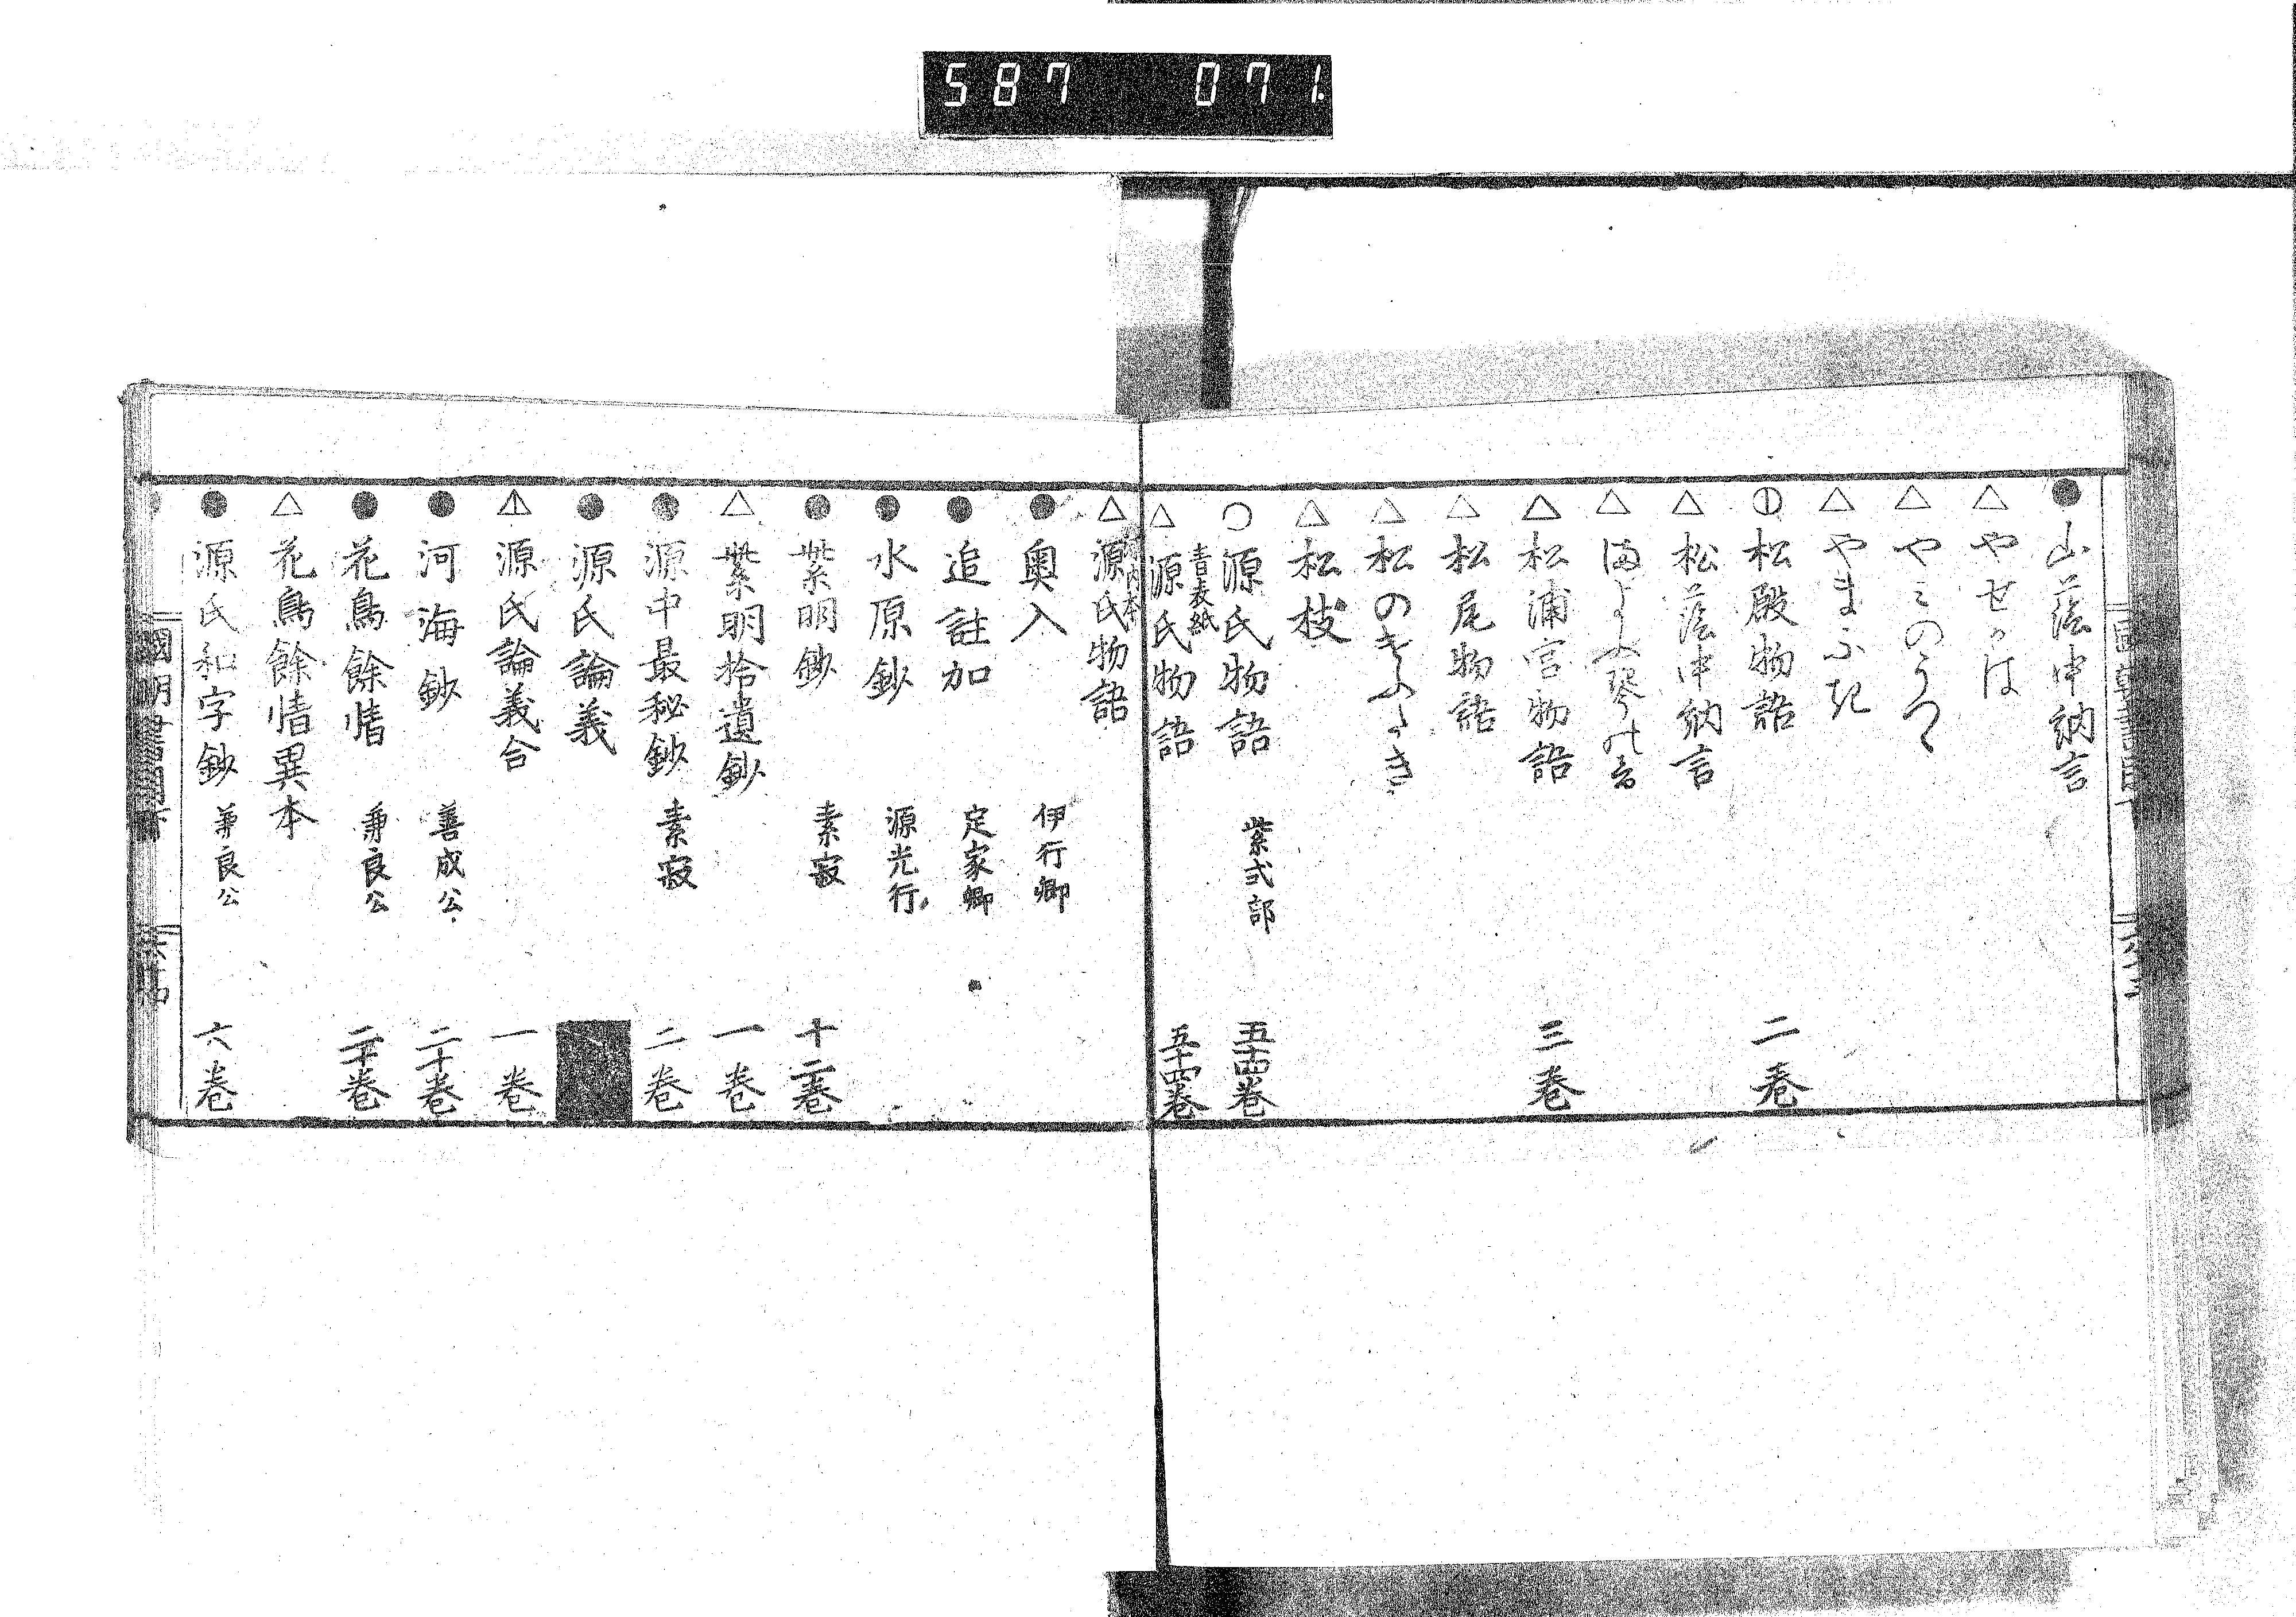 587 071.
● 山蔭中納言
△ やせかは
△ やみのうつゝ
△ やまふき
⦶ 松殿物語 二巻
△ 松蔭中納言
△
△ 松浦宮物語 三巻
△ 松尾物語
△ 松のき
△ 松枝
○ 源氏物語 紫式部 五十四巻
△ 青表紙 源氏物語 五十四巻
△ 源氏物語
● 奥入 伊行卿
● 追註加 定家卿
● 水原鈔 源光行
● 紫明鈔 素寂 十二巻
△ 紫明拾遺鈔 一巻
● 源中最秘鈔 素寂 二巻
● 源氏論義
△ 源氏論義合 一巻
● 河海鈔 善成公 二十巻
● 花鳥餘情 兼良公 二十巻
△ 花鳥餘情異本
● 源氏和字鈔 兼良公 六巻